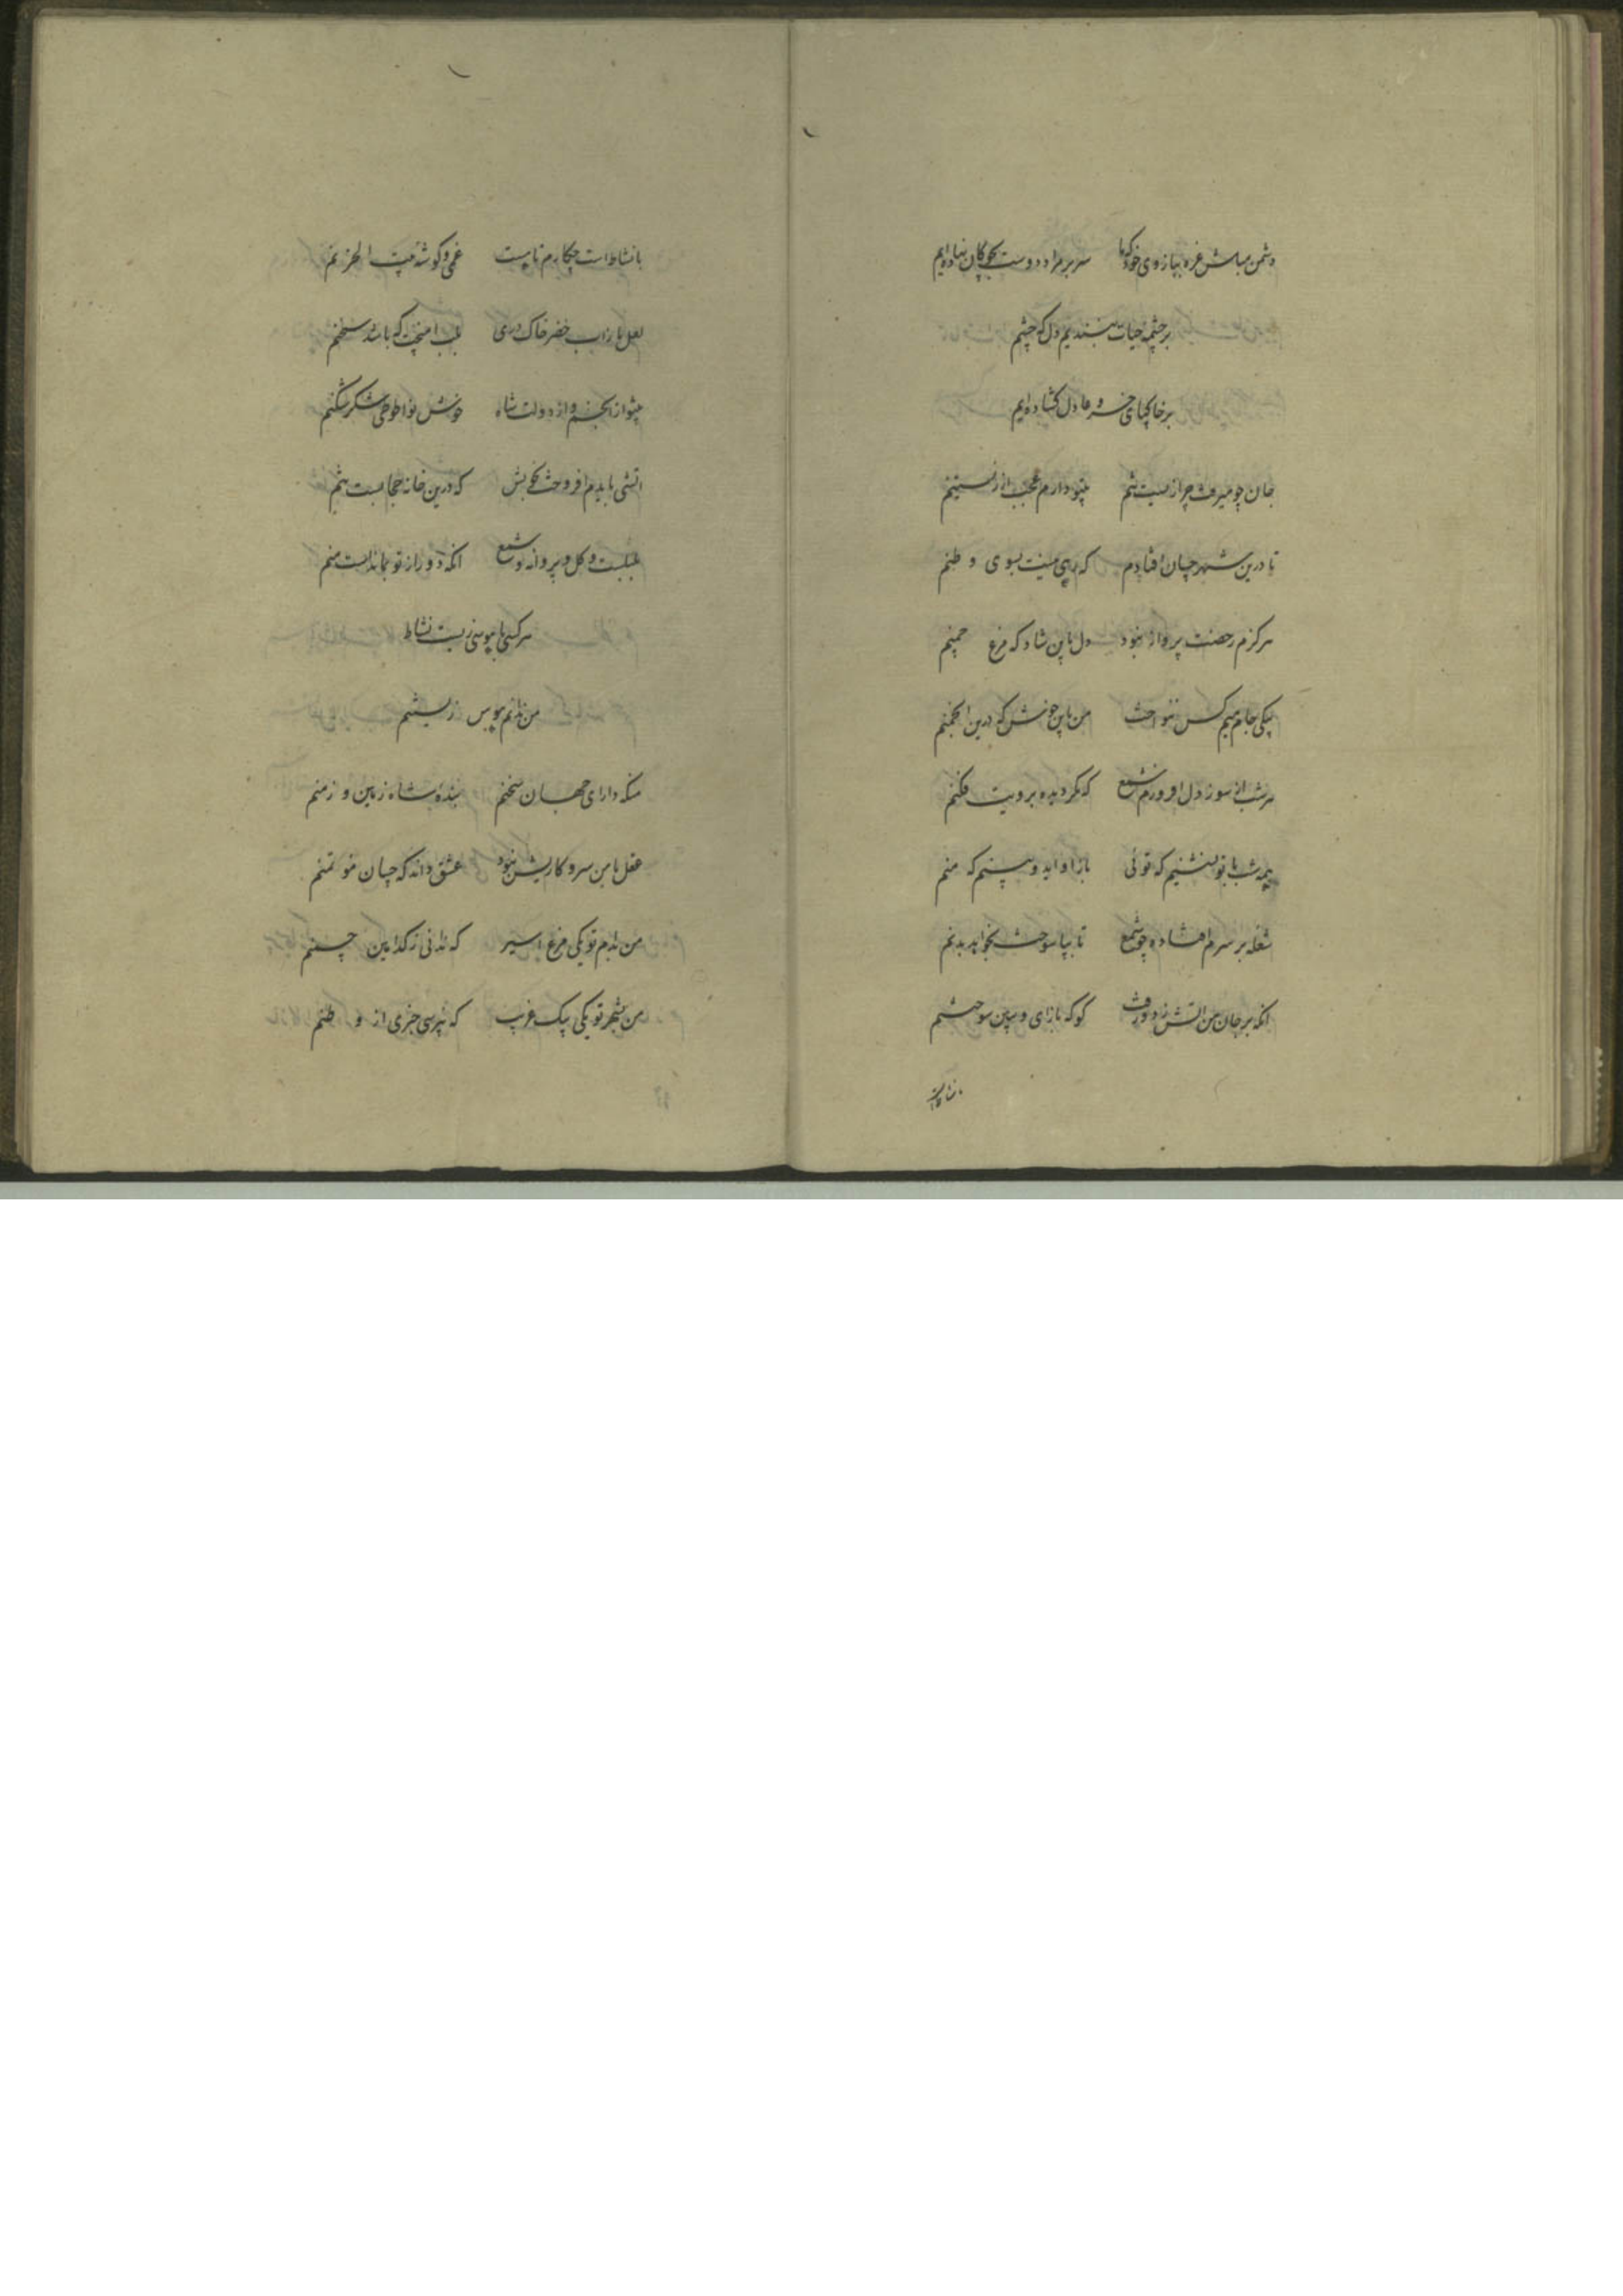 دشمن مباش غره ببازوی خود که ما سر بر مراد دوست بچوکان نهاده‌ایم
بر چشمه حیات نبندیم دل که چشم
بر خاکپای خسرو عادل کشاده‌ایم
جان چو میرفت چرا زیستم بیتو دارم عجب از زیستنم
تا درین شهر چسان افتادم که رهی نیست بسوی وطنم
هرکزم رخصت پرواز نبود دل باین شاد که مرغ چمنم
بیکی جام میم کس ننواخت من باین خوش که درین انجمنم
هر شب از سوز دل افروزم شمع که مکر دیده برویت فکنم
همه شب با تو نشینم که توئی باز اواید و بینم که منم
شعله بر سرم افتاده چو شمع تا بپا سوخت نخواهد بدنم
انکه بر جان من اتش زد و رفت کو که بازای و ببین سوختنم
با نشاط است
با نشاط است چکارم تا هست غمی و کوشه بیت الحزنم
لعل یار اب خضر خاک دری بلب امیخت که باشد سخنم
بیتو از انجم و از دولت شاه خوش نوا طوطی شکر شکنم
اتشی بایدم افروخت بخویش که درین خانه حجابست تنم
بلبلست و کل و پروانه و شمع انکه دور از تو بماندست منم
هر کسی با هوسی زیست نشاط
من ندانم بهوس زیستنم
منکه دارای جهان سخنم بنده شاه زمین و زمنم
عقل با من سر و کاریش نبود عشق داند که چسان موتمنم
من بدام تو یکی مرغ اسیر که ندانی ز کدامین چمنم
من بشهر تو یکی پیک غریب که نپرسی خبری از وطنم